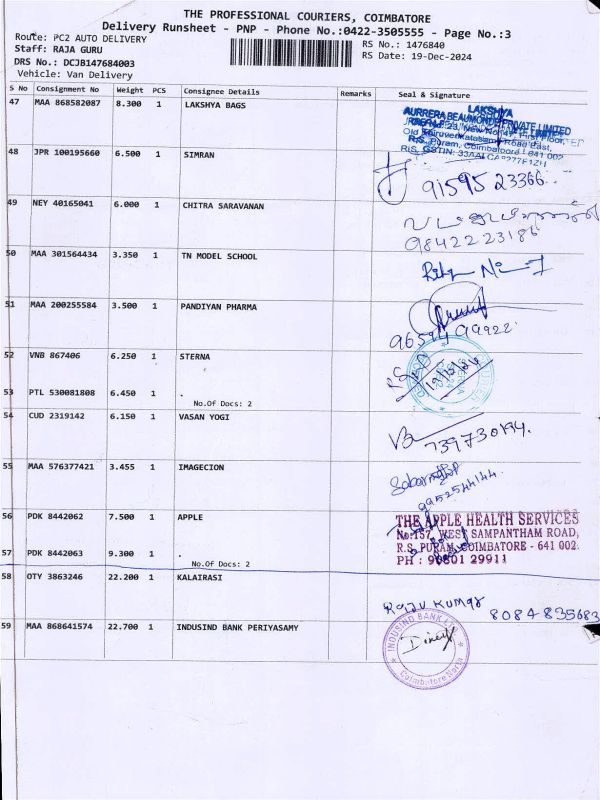 THE PROFESSIONAL COURIERS, COIMBATORE
Delivery Runsheet - PNP - Phone No.:0422-3505555 - Page No.:3
Route: PC2 AUTO DELIVERY
RS No.: 1476840
Staff: RAJA GURU
RS Date: 19-Dec-2024
DRS No.: DCJB147684003
Vehicle: Van Delivery
S No Consignment No Weight PCS Consignee Details Remarks Seal & Signature
47 MAA 868582087 8.300 1 LAKSHYA BAGS
LAKSHYA
AURRERA BEAUMOND PRIVATE LIMITED
R.S. Puram, Coimbatore - 641 002
48 JPR 100195660 6.500 1 SIMRAN
91595 23366
49 NEY 40165041 6.000 1 CHITRA SARAVANAN
98422 23186
50 MAA 301564434 3.350 1 TN MODEL SCHOOL
51 MAA 200255584 3.500 1 PANDIYAN PHARMA
52 VNB 867406 6.250 1 STERNA
53 PTL 530081808 6.450 1 .
No.Of Docs: 2
54 CUD 2319142 6.150 1 VASAN YOGI
739730194.
55 MAA 576377421 3.455 1 IMAGECION
9952544144
56 PDK 8442062 7.500 1 APPLE
THE APPLE HEALTH SERVICES
No:157, WEST SAMPANTHAM ROAD,
R.S. PURAM, COIMBATORE - 641 002.
57 PDK 8442063 9.300 1 .
PH : 98601 29911
No.Of Docs: 2
58 OTY 3863246 22.200 1 KALAIRASI
Raju Kumar 8084835683
59 MAA 868641574 22.700 1 INDUSIND BANK PERIYASAMY
INDUSIND BANK
Coimbatore North